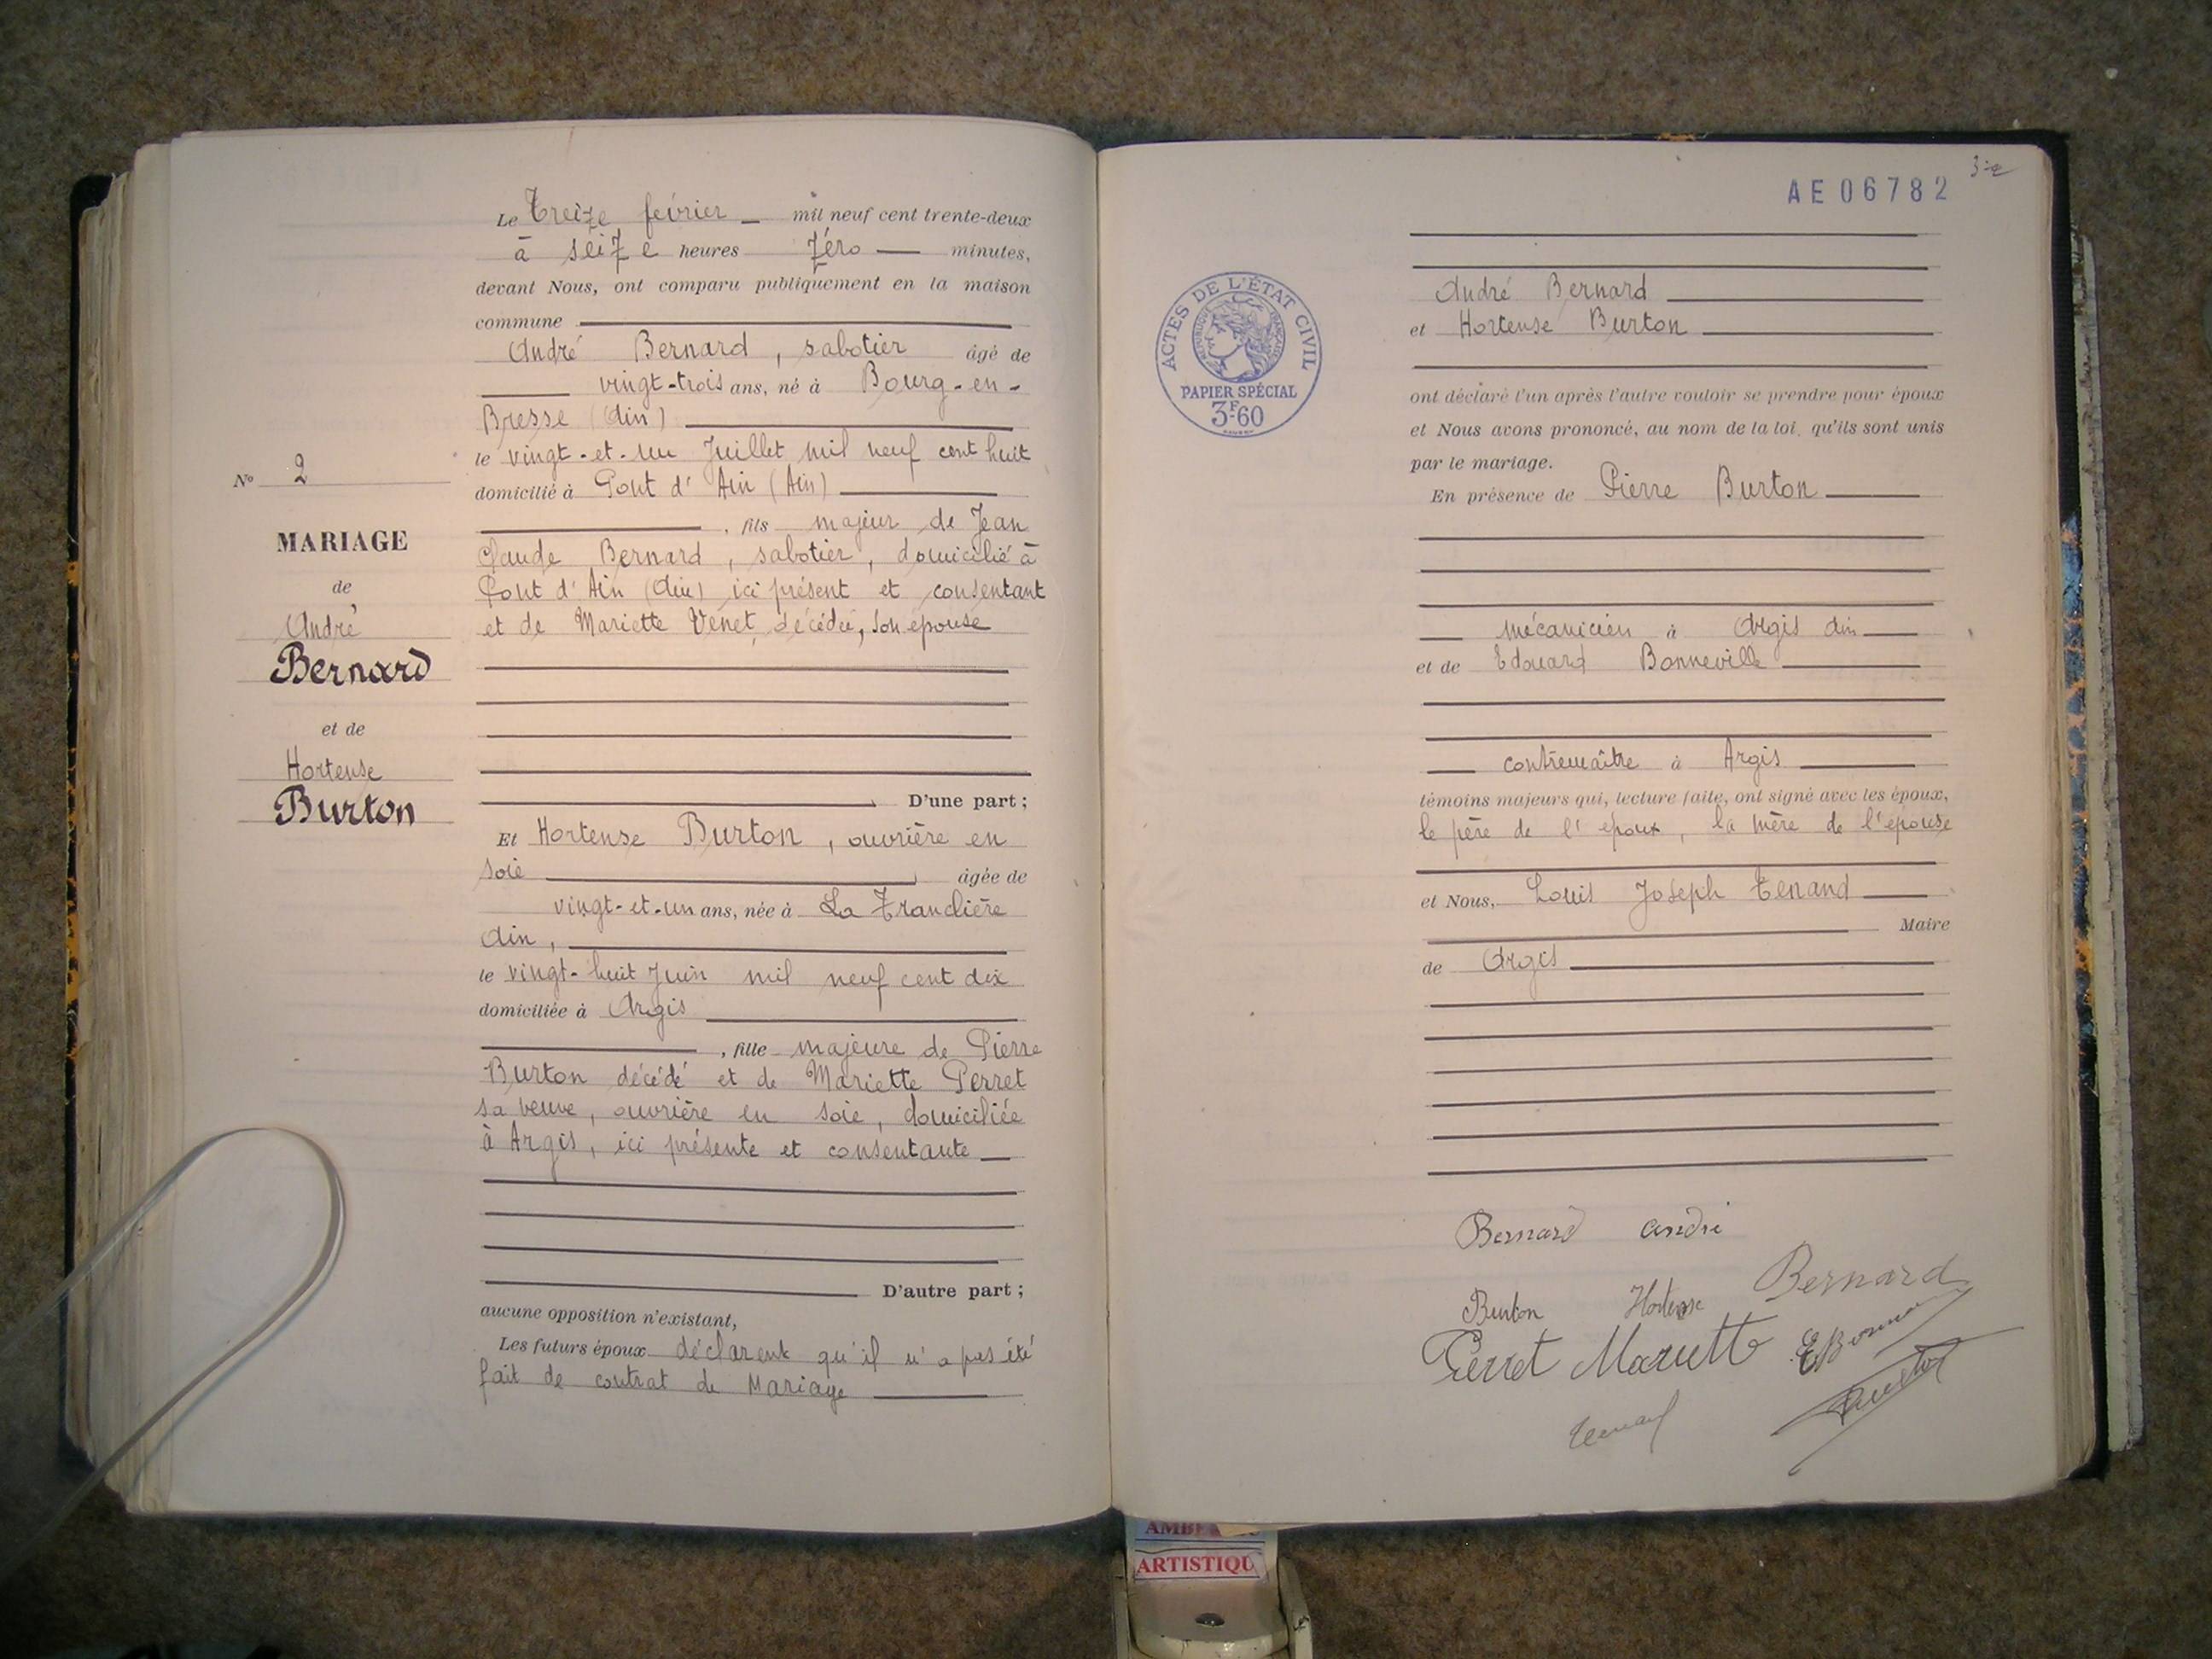 Le Treize février mil neuf cent trente-deux
à seize heures Zéro minutes,
devant Nous, ont comparu publiquement en la maison
commune
André Bernard, sabotier âgé de
vingt-trois ans, né à Bourg-en-
Bresse (Ain)
le vingt-et-un Juillet mil neuf cent huit
domicilié à Pont d'Ain (Ain)
, fils majeur de Jean
Claude Bernard, sabotier, domicilié à
Pont d'Ain (Ain) ici présent et consentant
et de Mariette Venet, décédée, son épouse
D'une part ;
Et Hortense Burton, ouvrière en
soie âgée de
vingt-et-un ans, née à La Tranclière
Ain,
le vingt-huit Juin mil neuf cent dix
domiciliée à Argis
, fille majeure de Pierre
Burton décédé et de Mariette Perret
sa veuve, ouvrière en soie, domiciliée
à Argis, ici présente et consentante
D'autre part ;
aucune opposition n'existant,
Les futurs époux déclarent qu'il n'a pas été
fait de contrat de Mariage
N° 2
MARIAGE
de
André
Bernard
et de
Hortense
Burton
AE 06782
ACTES DE L'ÉTAT CIVIL
RÉPUBLIQUE FRANÇAISE
PAPIER SPÉCIAL
3F60
André Bernard
et Hortense Burton
ont déclaré l'un après l'autre vouloir se prendre pour époux
et Nous avons prononcé, au nom de la loi, qu'ils sont unis
par le mariage.
En présence de Pierre Burton
mécanicien à Argis Ain
et de Edouard Bonneville
contremaître à Argis
témoins majeurs qui, lecture faite, ont signé avec les époux,
le père de l'époux, la mère de l'épouse
et Nous, Louis Joseph Tenand
Maire
de Argis
Bernard andré
Bernard
Burton Hortense
Perret Mariette
Burton
Tenand
ARTISTIQU